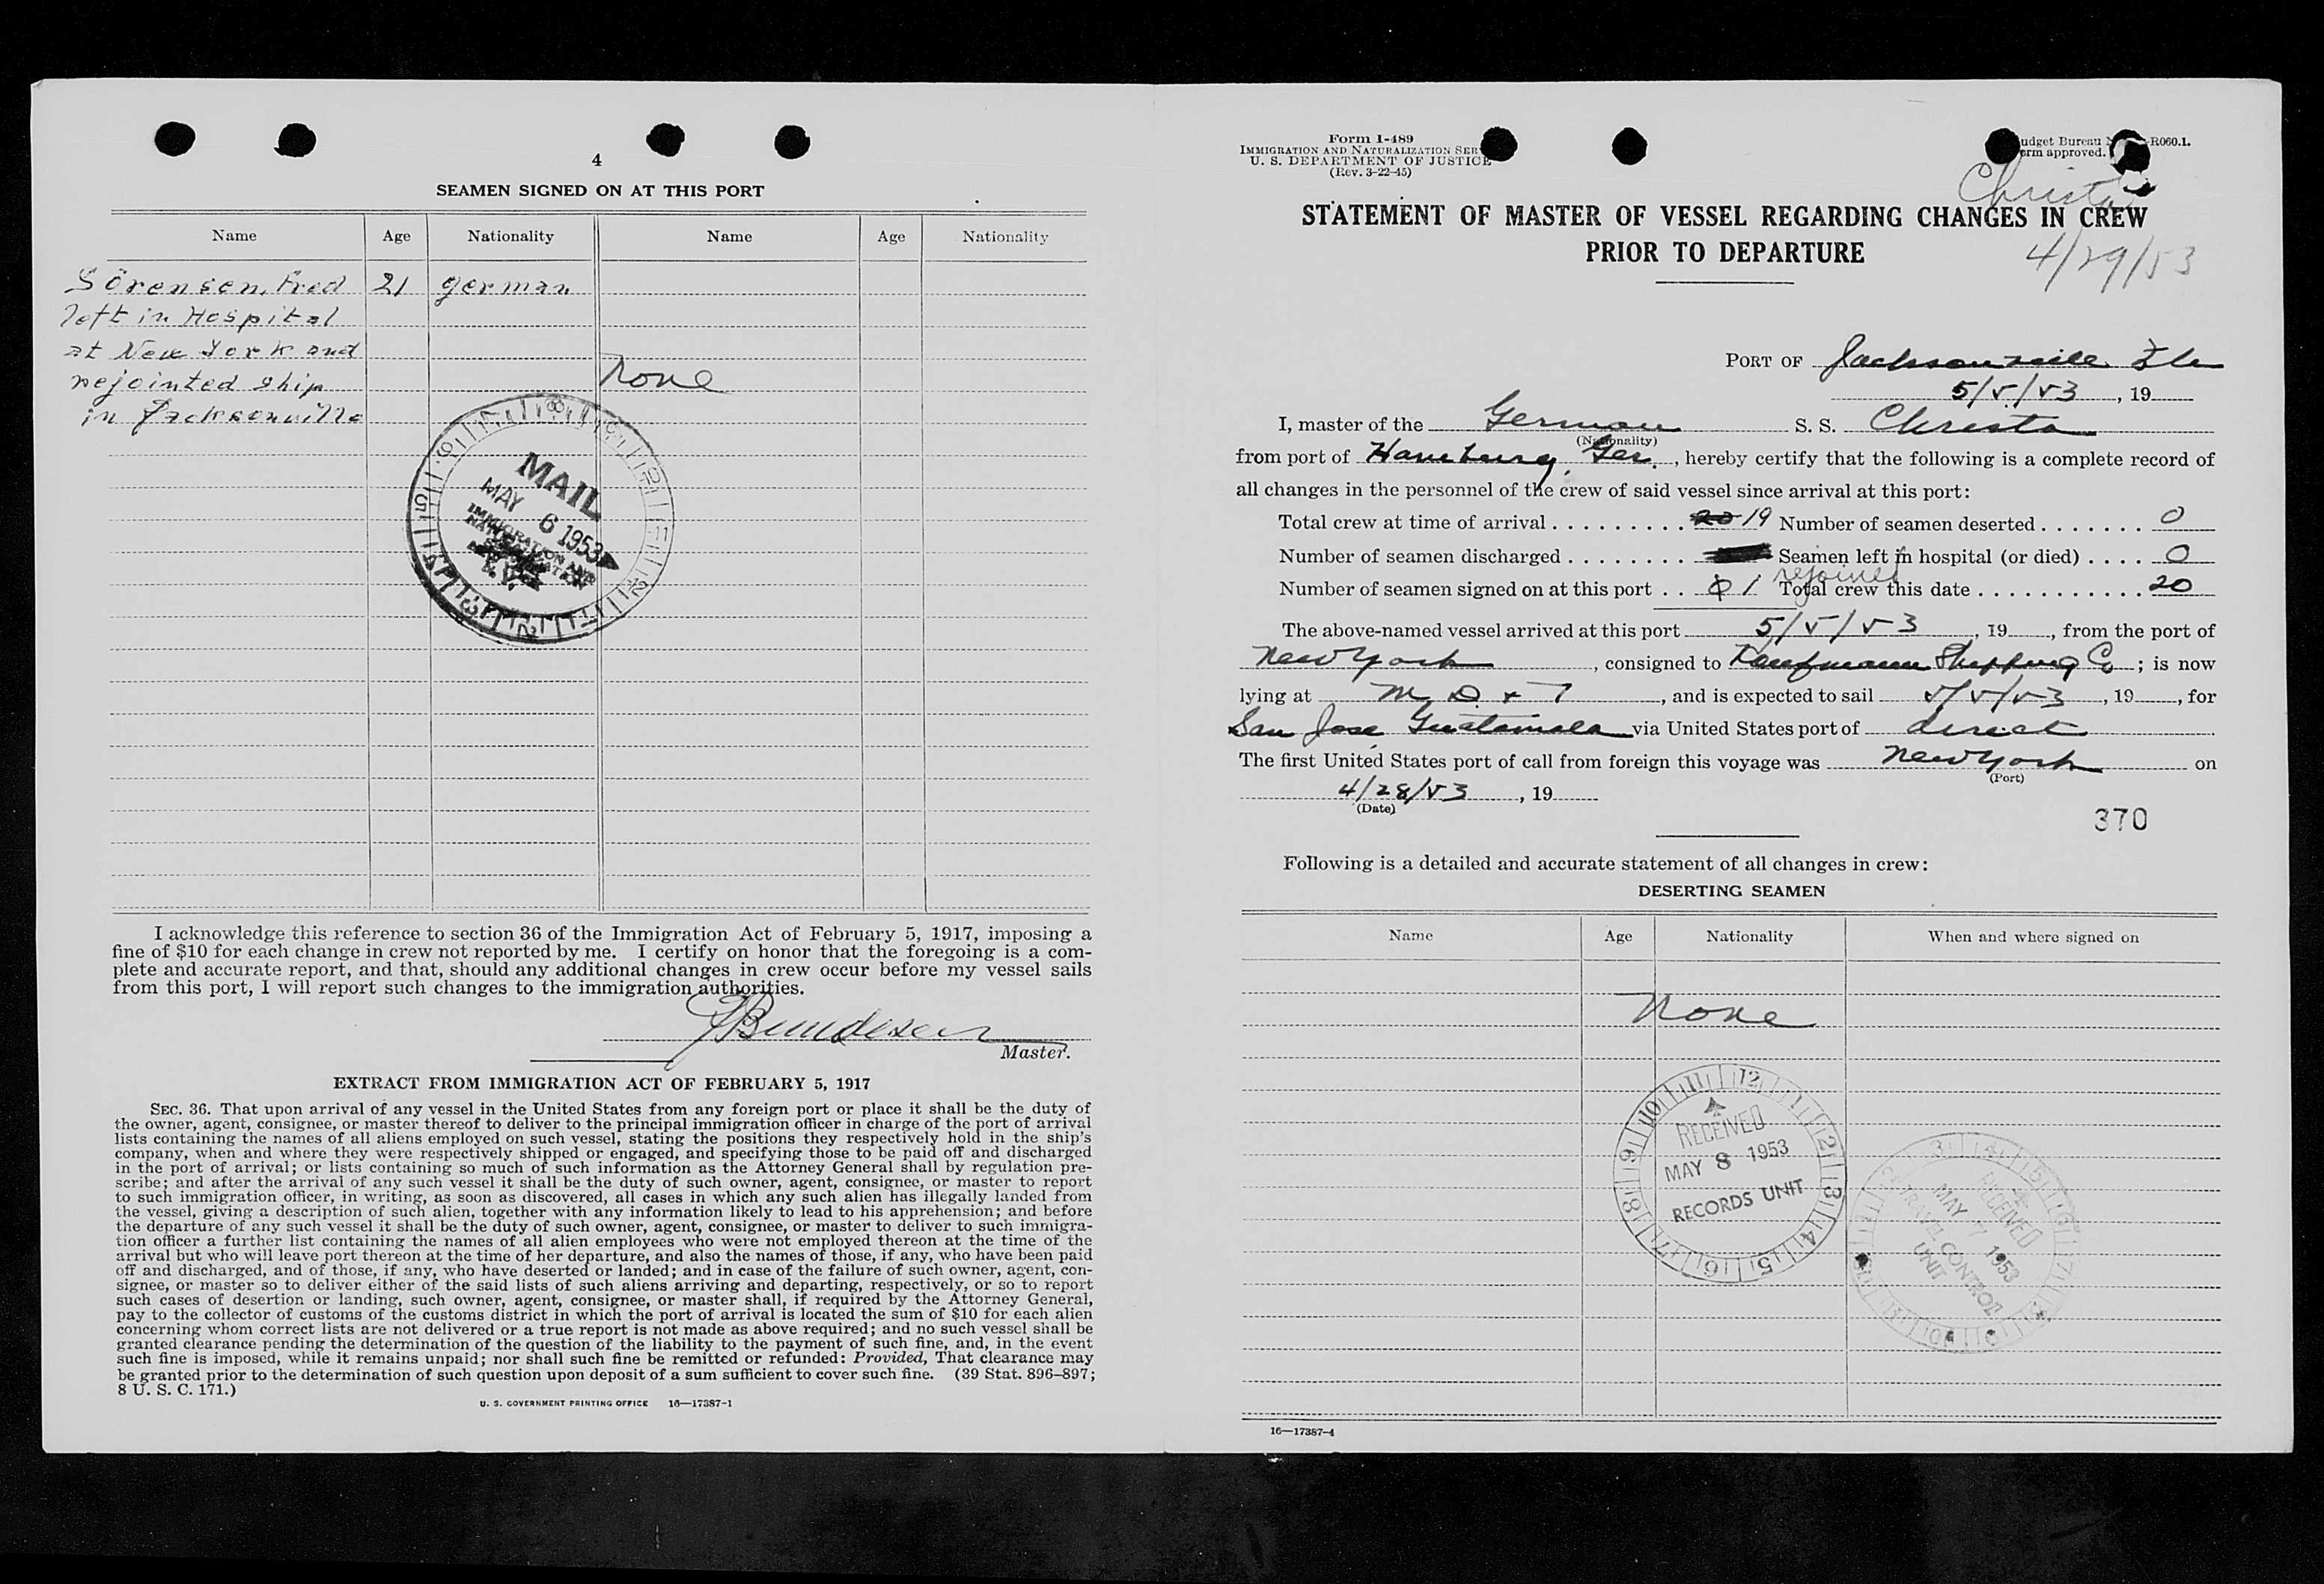 4
SEAMEN SIGNED ON AT THIS PORT
Name Age Nationality Name Age Nationality
Sörensen, Fred 21 german
left in Hospital
at New York and
rejointed ship
in Jacksonville
None
MAIL
MAY 6 1953
IMMIGRATION AND
NATURALIZATION
I acknowledge this reference to section 36 of the Immigration Act of February 5, 1917, imposing a
fine of $10 for each change in crew not reported by me. I certify on honor that the foregoing is a com-
plete and accurate report, and that, should any additional changes in crew occur before my vessel sails
from this port, I will report such changes to the immigration authorities.
Master.
EXTRACT FROM IMMIGRATION ACT OF FEBRUARY 5, 1917
SEC. 36. That upon arrival of any vessel in the United States from any foreign port or place it shall be the duty of
the owner, agent, consignee, or master thereof to deliver to the principal immigration officer in charge of the port of arrival
lists containing the names of all aliens employed on such vessel, stating the positions they respectively hold in the ship's
company, when and where they were respectively shipped or engaged, and specifying those to be paid off and discharged
in the port of arrival; or lists containing so much of such information as the Attorney General shall by regulation pre-
scribe; and after the arrival of any such vessel it shall be the duty of such owner, agent, consignee, or master to report
to such immigration officer, in writing, as soon as discovered, all cases in which any such alien has illegally landed from
the vessel, giving a description of such alien, together with any information likely to lead to his apprehension; and before
the departure of any such vessel it shall be the duty of such owner, agent, consignee, or master to deliver to such immigra-
tion officer a further list containing the names of all alien employees who were not employed thereon at the time of the
arrival but who will leave port thereon at the time of her departure, and also the names of those, if any, who have been paid
off and discharged, and of those, if any, who have deserted or landed; and in case of the failure of such owner, agent, con-
signee, or master so to deliver either of the said lists of such aliens arriving and departing, respectively, or so to report
such cases of desertion or landing, such owner, agent, consignee, or master shall, if required by the Attorney General,
pay to the collector of customs of the customs district in which the port of arrival is located the sum of $10 for each alien
concerning whom correct lists are not delivered or a true report is not made as above required; and no such vessel shall be
granted clearance pending the determination of the question of the liability to the payment of such fine, and, in the event
such fine is imposed, while it remains unpaid; nor shall such fine be remitted or refunded: Provided, That clearance may
be granted prior to the determination of such question upon deposit of a sum sufficient to cover such fine. (39 Stat. 896–897;
8 U. S. C. 171.)
U. S. GOVERNMENT PRINTING OFFICE 16—17387-1
Form I-489
IMMIGRATION AND NATURALIZATION SER
U. S. DEPARTMENT OF JUSTICE
(Rev. 3-22-45)
udget Bureau R060.1.
orm approved.
Christa
STATEMENT OF MASTER OF VESSEL REGARDING CHANGES IN CREW
PRIOR TO DEPARTURE
4/29/53
PORT OF Jacksonville Fla
5/5/53, 19
I, master of the German S. S. Christa
(Nationality)
from port of Hamburg, Ger., hereby certify that the following is a complete record of
all changes in the personnel of the crew of said vessel since arrival at this port:
Total crew at time of arrival . . . . . . . . . 20 19 Number of seamen deserted . . . . . . . 0
Number of seamen discharged . . . . . . . . Seamen left in hospital (or died) . . . . 0
rejoined
Number of seamen signed on at this port . . 0 1 Total crew this date . . . . . . . . . . . 20
The above-named vessel arrived at this port 5/5/53, 19, from the port of
New York, consigned to Kaufmann Shipping Co; is now
lying at M D & T, and is expected to sail 5/5/53, 19, for
San Jose Guatamala via United States port of direct
The first United States port of call from foreign this voyage was New York on
(Port)
4/28/53, 19
(Date)
370
Following is a detailed and accurate statement of all changes in crew:
DESERTING SEAMEN
Name Age Nationality When and where signed on
None
RECEIVED
MAY 8 1953
RECORDS UNIT
RECEIVED
MAY 7 1953
TRAVEL CONTROL
UNIT
16—17387-4